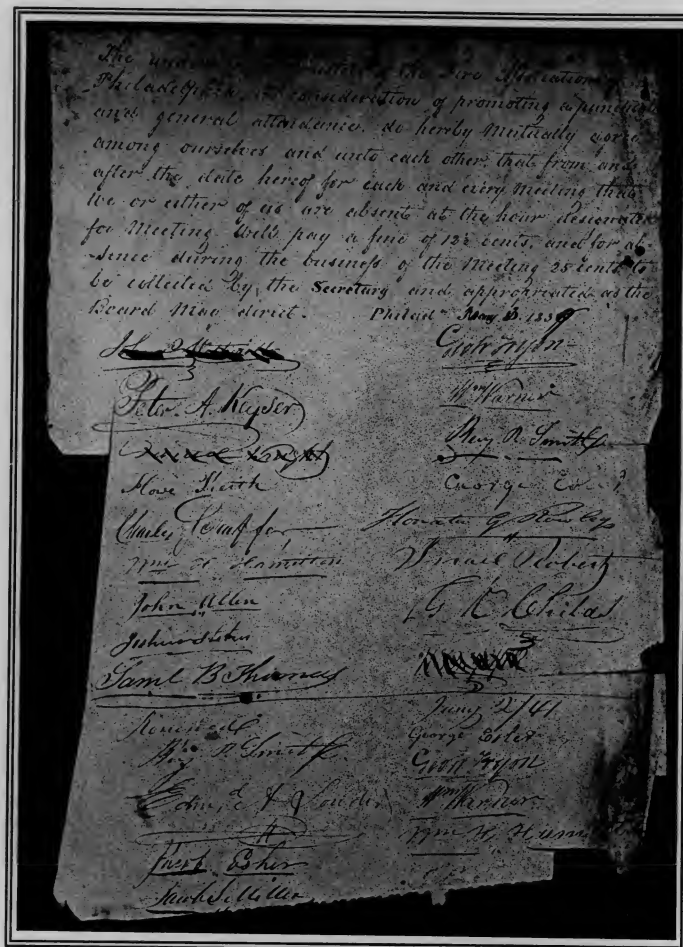 The of the Fire Association of
Philadelphia in consideration of promoting a punctual
and general attendance, do hereby Mutually
among ourselves and unto each other, that from and
after the date hereof for each and every Meeting that
we or either of us are absent at the hour designated
for Meeting Will pay a fine of 12½ cents, and for ab-
-sence during the business of the Meeting 25 cents to
be collected by the Secretary and appropriated as the
Board May direct. Philada
Peter. A. Keyser
Charles
Wm H Hamilton
John Allen
Saml B Thomas
Renewed
A. Smith
Jacob Esher
Jacob S. Miller
Wm Warner
Benj R. Smith
George
Horatio G. Rowley
Israel Roberts
G W Childs
2/41
George Esler
Geo W Tryon
Wm Warner
Wm H